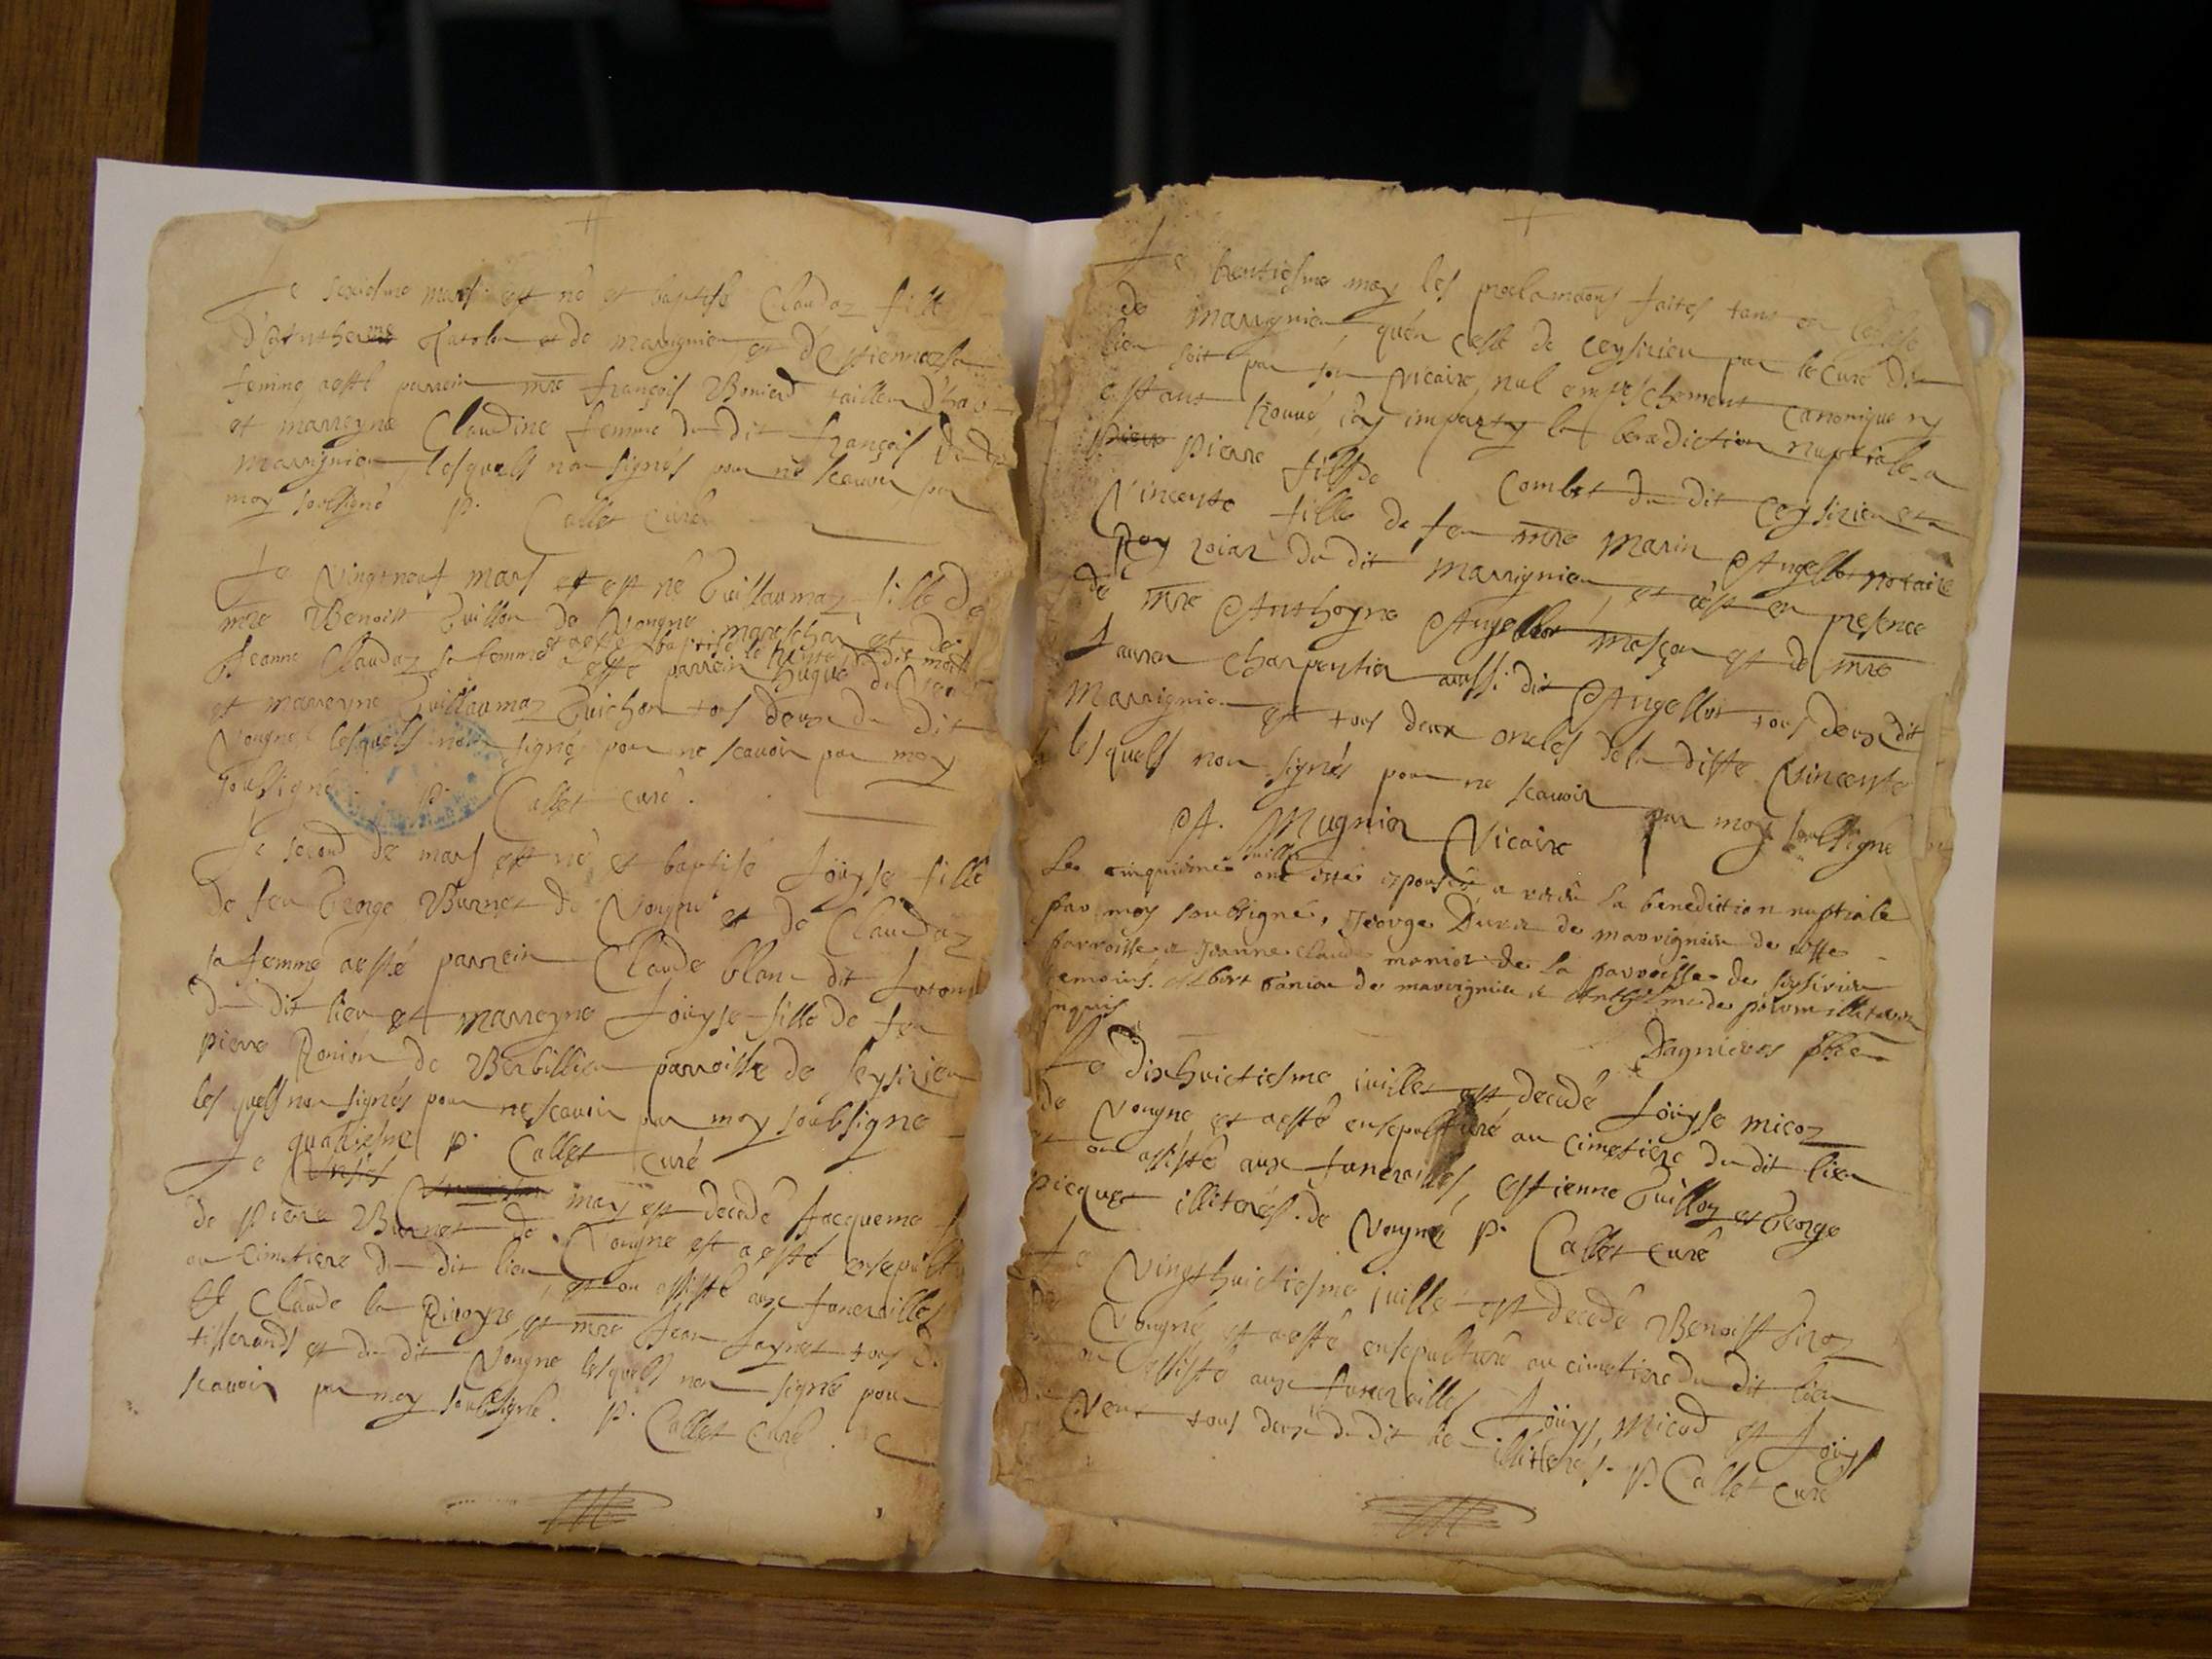 Le sexiesme mars est né et baptisé Claudaz fille
et de Marignieu et d'Estiennaz sa
femme a esté parrein mre françois Bonierd tailleur d'hab
et marreyne Claudine femme du dit françois du dit
Marignieu lesquels non signés pour ne scavoir par
moy soubsigné P. Callet curé
Le vingtneuf mars est né Guillaumaz fille de
mre Benoist Guillon de Vongne mareschar et de
Jeanne Claudaz sa femme et a esté baptisé le du dit mois
a esté parrein hugue du
et marreyne Guillaumaz Guichon tous deux du dit
Vongne lesquels non signé pour ne scavoir par moy
soussigné P. Callet curé.
Le second de mars est né et baptisé Loüyse fille
de feu George Burnet de Vongne et de Claudaz
sa femme a esté parrein Claude blanc dit
du dit lieu et marreyne Loüyse fille de feu
pierre de Berbillieu parroisse de Ceysirieu
les quels non signés pour ne scavoir par moy soubsigné
P. Callet curé
Le quatriesme may est decedé Jacquema
de pierre Burnet de Vongne et a esté ensepult
au cimetiere du dit lieu, et on assisté aux funerailles
Claude la et mre Jean Jaynet tous d
tisserands et du dit Vongne lesquels non signé pour
scavoir par moy soubsigné. P. Callet curé.
Le trentiesme may les proclamaons faites tant en l'eglise
de Marignieu qu'en celle de ceysirieu par le curé du
lieu soit par son vicaire, nul empeschement canonique ny
estant trouvé, j'ay imparty la benediction nuptiale a
pierre fils de Combet du dit Ceysirieu et a
Vincente fille de feu mre Marin Angellot notaire
Roy du dit Marrignieu, et c'est en presence
de mre Anthoyne Angellot masçon et de mre
Lauren charpentier aussi dit Angellot tous deux dit
Marrignieu et tous deux oncles de la ditte Vincente
lesquels non signés pour ne scavoir par moy soubsigné
A. Mugnier Vicaire
Le cinquiéme juillet ont esté espousés a la benediction nuptiale
par moy soubsigné, George Durer de marrignieu de cette
parroisse, et Jeanne Claude de la parroisse de seysirieu
temoins. Albert de marrignieu et Anthelme de
Dagnieres pbre
Le dixhuictiesme juillet est decedé Loüyse micoz
de Vongne et a esté ensepulturé au cimetiere du dit lieu
et on assisté aux funerailles, estienne Guilloz et George
picquet illiterés. de Vongne P. Callet curé
Le vingthuictiesme juillet est decedé Benoist
de Vongne et a esté ensepulturé au cimetiere du dit lieu
et on assisté aux funerailles Loüys, Micod et Loüys
tous deux du dit lieu illiterés. P. Callet curé